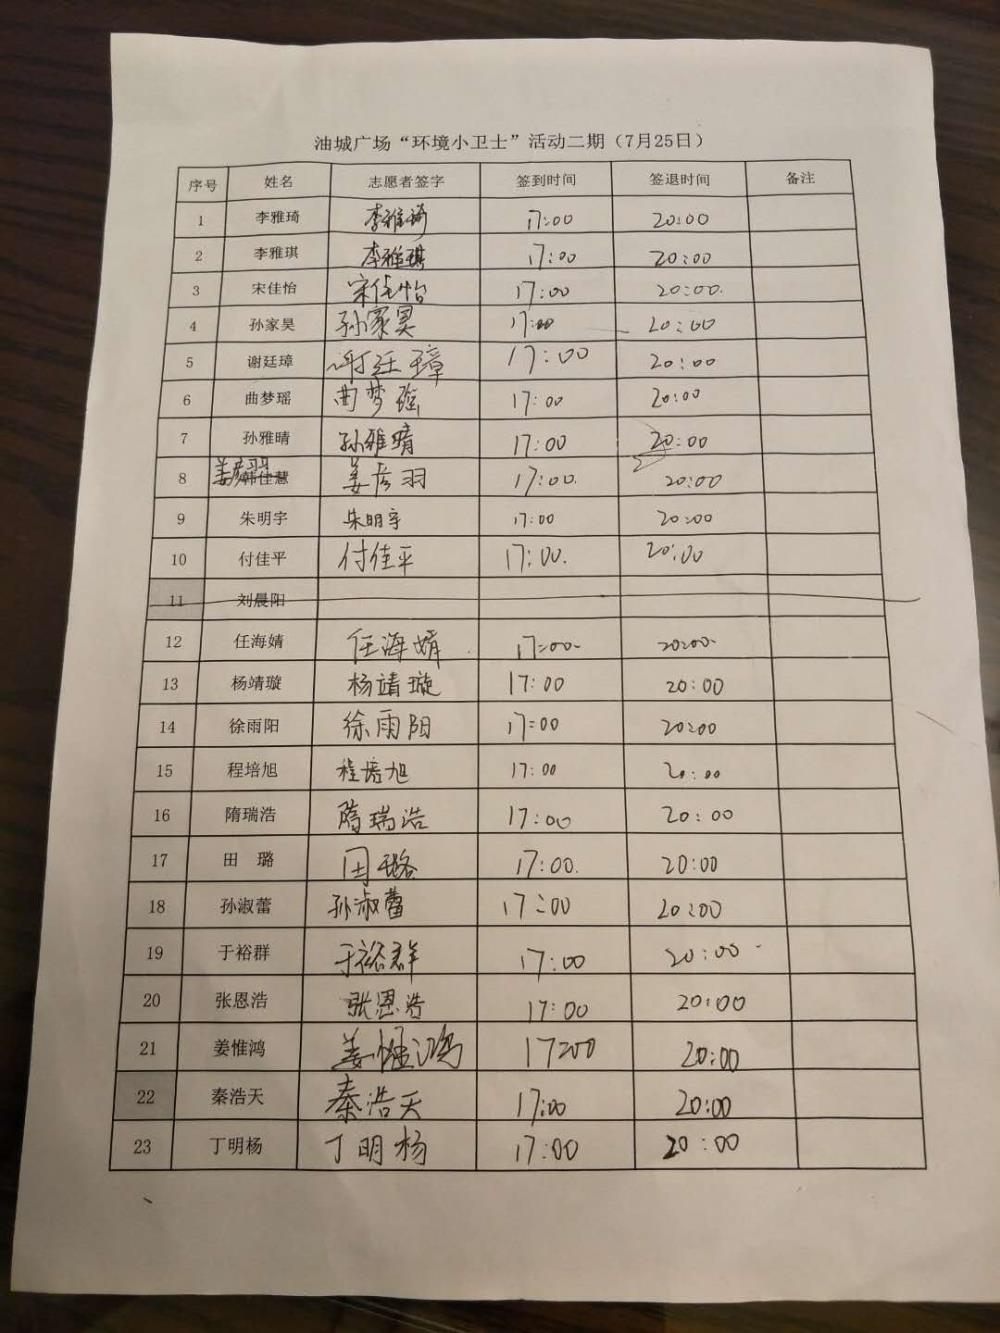 油城广场“环境小卫士”活动二期（7月25日）
序号 姓名 志愿者签字 签到时间 签退时间 备注
1 李雅琦 李雅琦 17:00 20:00
2 李雅琪 李雅琪 17:00 20:00
3 宋佳怡 宋佳怡 17:00 20:00.
4 孙家昊 孙家昊 17:00 20:00
5 谢廷璋 谢廷璋 17:00 20:00
6 曲梦瑶 曲梦瑶 17:00 20:00
7 孙雅晴 孙雅晴 17:00 20:00
8 姜彦羽 韩佳慧 姜彦羽 17:00. 20:00
9 朱明宇 朱明宇 17:00 20:00
10 付佳平 付佳平 17:00. 20:00
11 刘晨阳
12 任海婧 任海婧 17:00 20:00
13 杨靖璇 杨靖璇 17:00 20:00
14 徐雨阳 徐雨阳 17:00 20:00
15 程培旭 程培旭 17:00 20:00
16 隋瑞浩 隋瑞浩 17:00 20:00
17 田 璐 田璐 17:00. 20:00
18 孙淑蕾 孙淑蕾 17:00 20:00
19 于裕群 于裕群 17:00 20:00
20 张恩浩 张恩浩 17:00 20:00
21 姜惟鸿 姜惟鸿 17:00 20:00
22 秦浩天 秦浩天 17:00 20:00
23 丁明杨 丁明杨 17:00 20:00